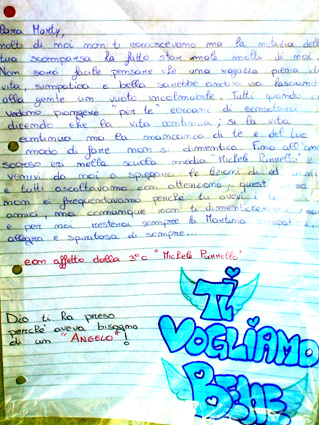 Cara Marty,
molti di noi non ti conoscevamo ma la notizia della
tua scomparsa ha fatto star male molti di noi.
Non sarà facile pensare che una ragazza piena di
vita, simpatica e bella sarebbe andata via lasciando
alla gente un vuoto incolmabile. Tutti quando ci
vedono piangere "per te" cercano di consolarci
dicendo che la vita continua; sì la vita
continua ma la mancanza di te e del tuo
modo di fare non si dimentica. Fino all'anno
scorso eri nella scuola media "Michele Purrello" e
venivi da noi a spiegarci le lezioni di ed.
e tutti ascoltavamo con attenzione, quest'anno
non ci frequentavamo perché tu avevi i tuoi
amici, ma comunque non ti dimenticheremo mai
e per noi resterai sempre la Martina simpatica,
allegra e spiritosa di sempre...
con affetto dalla 3°C "Michele Purrello"
Dio ti ha preso
perché aveva bisogno
di un "ANGELO"!
TI
VOGLIAMO
BENE